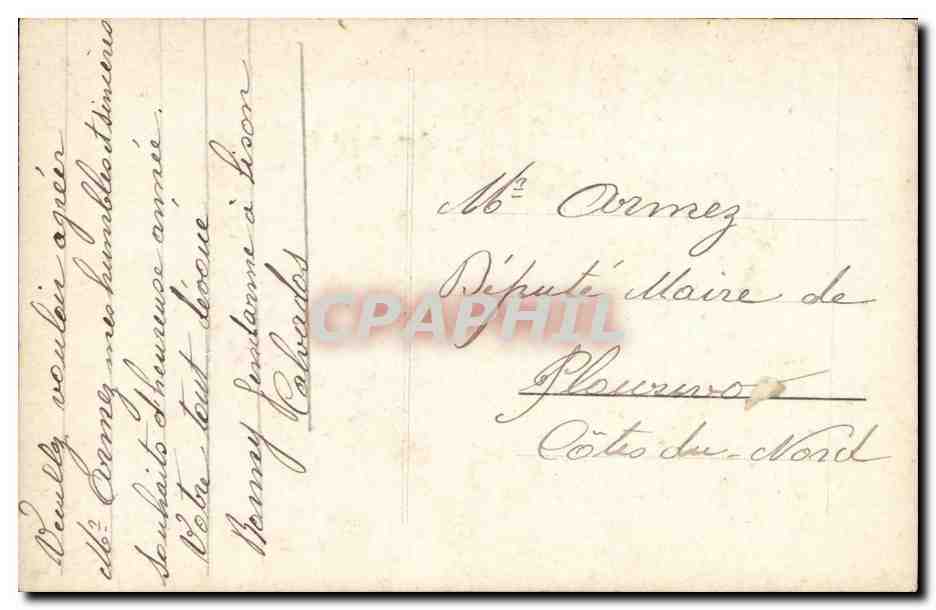 Veuillez vouloir agréer
Mr Armez mes humbles et sincères
souhaits d'heureuse année.
Votre tout dévoué
Bamy Gendarme à Lison
Calvados
Mr Armez
Député Maire de
Plourivo
Côtes-du-Nord
CPAPHIL